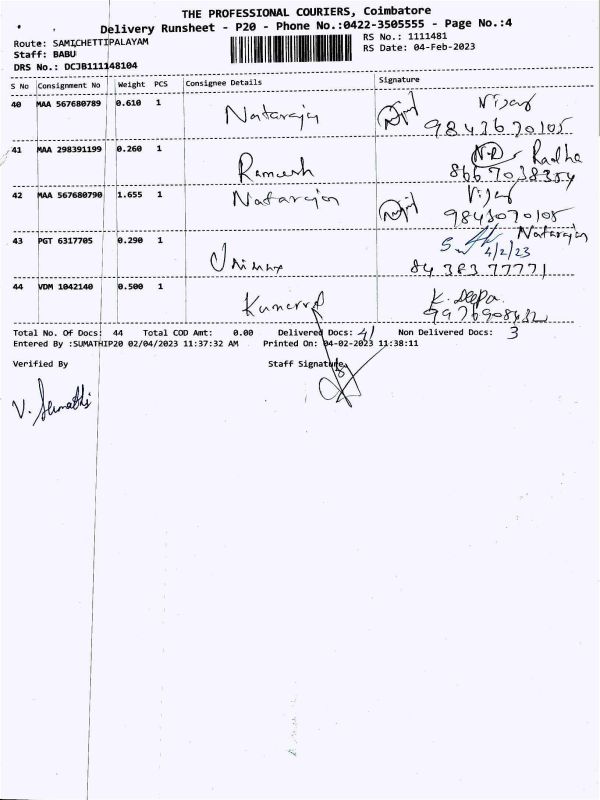 THE PROFESSIONAL COURIERS, Coimbatore
Delivery Runsheet - P20 - Phone No.:0422-3505555 - Page No.:4
Route: SAMICHETTIPALAYAM
Staff: BABU
DRS No.: DCJB111148104
RS No.: 1111481
RS Date: 04-Feb-2023
S No Consignment No Weight PCS Consignee Details Signature
40 MAA 567680789 0.610 1 Natarajan Vijay
9843070105
41 MAA 298391199 0.260 1 Ramesh N.R Radha
8667038354
42 MAA 567680790 1.655 1 Natarajan Vijay
9843070105
Natarajan
43 PGT 6317705 0.290 1 4/2/23
84383 77771
44 VDM 1042140 0.500 1 K. Deepa
Total No. Of Docs: 44 Total COD Amt: 0.00 Delivered Docs: 41 Non Delivered Docs: 3
Entered By :SUMATHIP20 02/04/2023 11:37:32 AM Printed On: 04-02-2023 11:38:11
Verified By Staff Signature
V. Sumathi